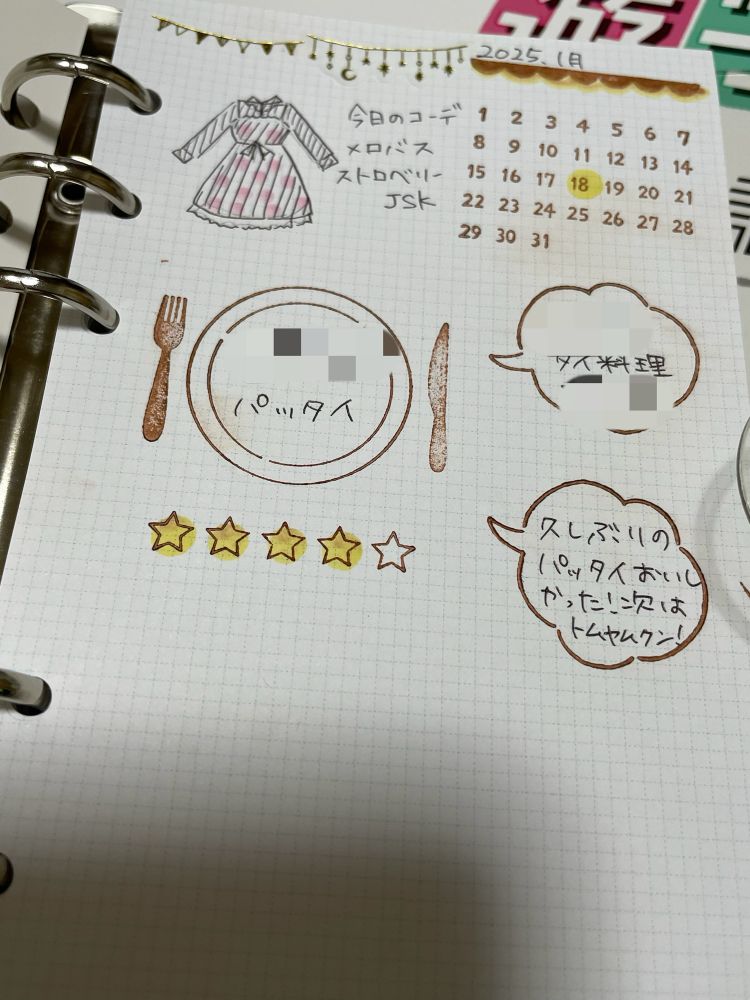 2025.1月
今日のコーデ
メロバス
ストロベリー
JSK
1 2 3 4 5 6 7
8 9 10 11 12 13 14
15 16 17 18 19 20 21
22 23 24 25 26 27 28
29 30 31
パッタイ
タイ料理
久しぶりの
パッタイおいし
かった!次は
トムヤムクン!